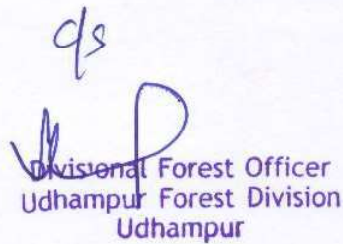 c/s
Divisional Forest Officer
Udhampur Forest Division
Udhampur